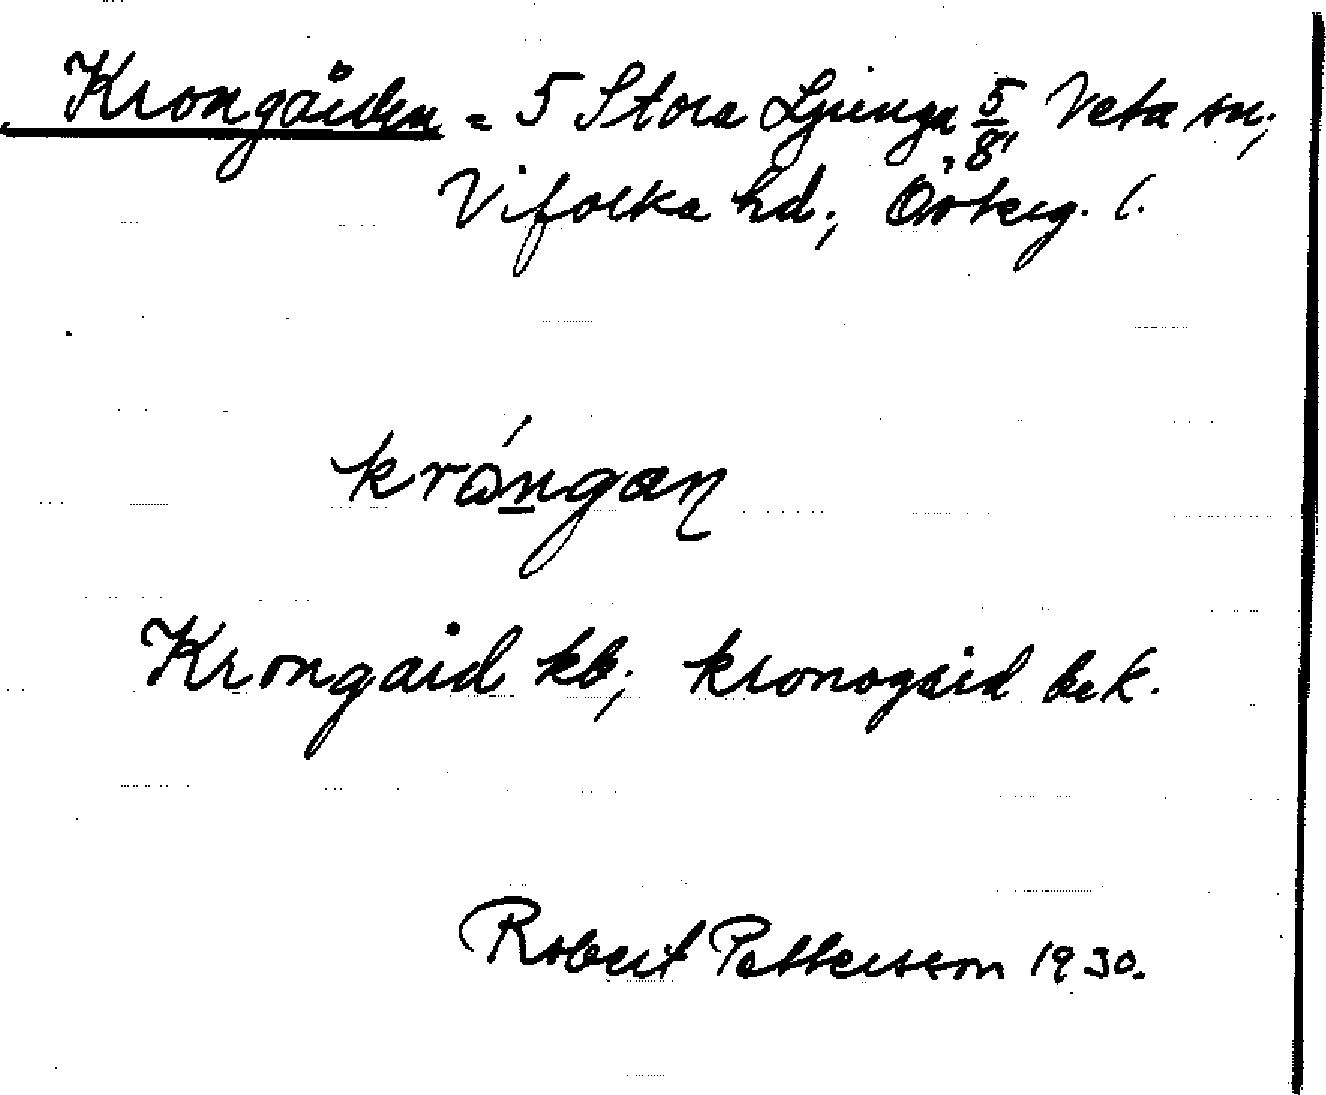 Krongården = 5 Stora Ljunga 5/8, Veta sn,
Vifolka hd, Österg. l.
krångan
Krongård kb, kronogård bek.
Robert Pettersson 1930.